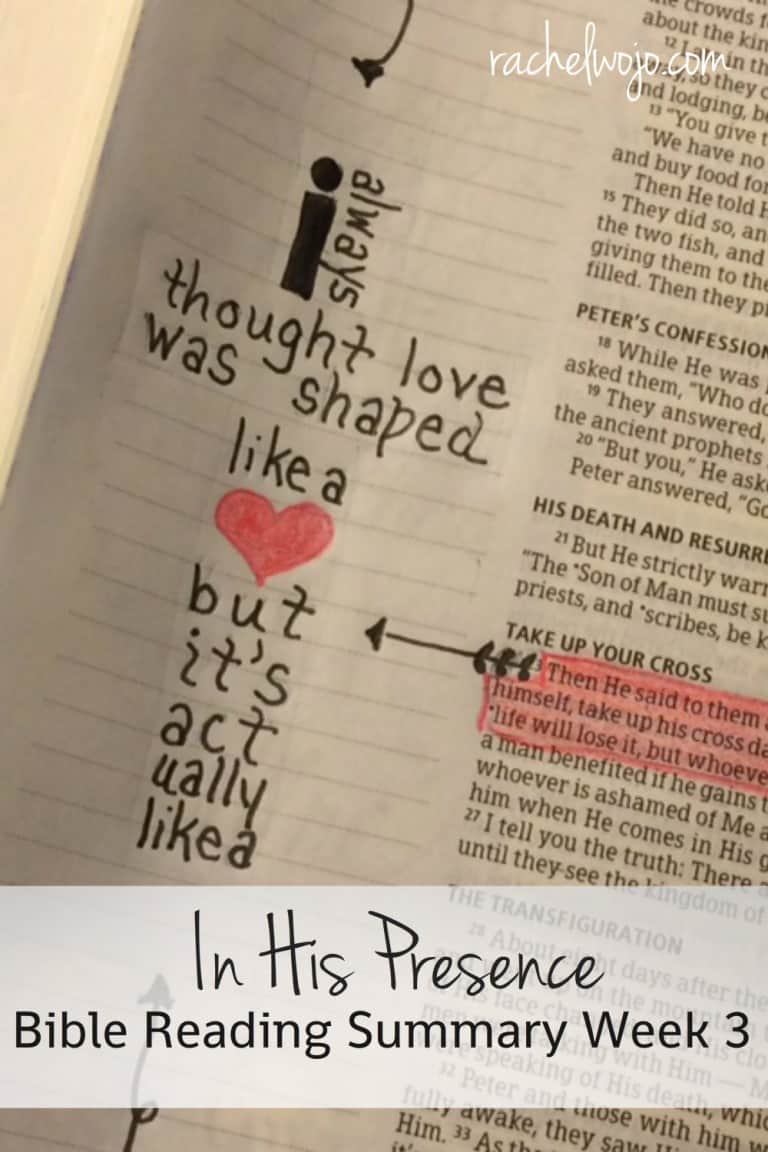 rachelwojo.com
i always
thought love
was shaped
like a
but
it's
act
ually
like a
crowds f
about the kin
so they c
and lodging, be
13 "You give t
"We have no
and buy food for
Then He told H
15 They did so, an
the two fish, and
giving them to the
filled. Then they pi
PETER'S CONFESSION
18 While He was
asked them, "Who do
19 They answered,
the ancient prophets
20 "But you," He ask
Peter answered, "Go
HIS DEATH AND RESURRE
21 But He strictly warn
"The *Son of Man must su
priests, and *scribes, be k
TAKE UP YOUR CROSS
Then He said to them a
himself, take up his cross da
*life will lose it, but whoeve
a man benefited if he gains t
whoever is ashamed of Me a
him when He comes in His g
27 I tell you the truth: There a
until they see the kingdom of
THE TRANSFIGURATION
28 About eight days after the
on the mountain
His face changed His clo
men talking with Him — M
were speaking of His death, whic
32 Peter and those with him w
fully awake, they saw Hi
Him. 33 As th
In His Presence
Bible Reading Summary Week 3